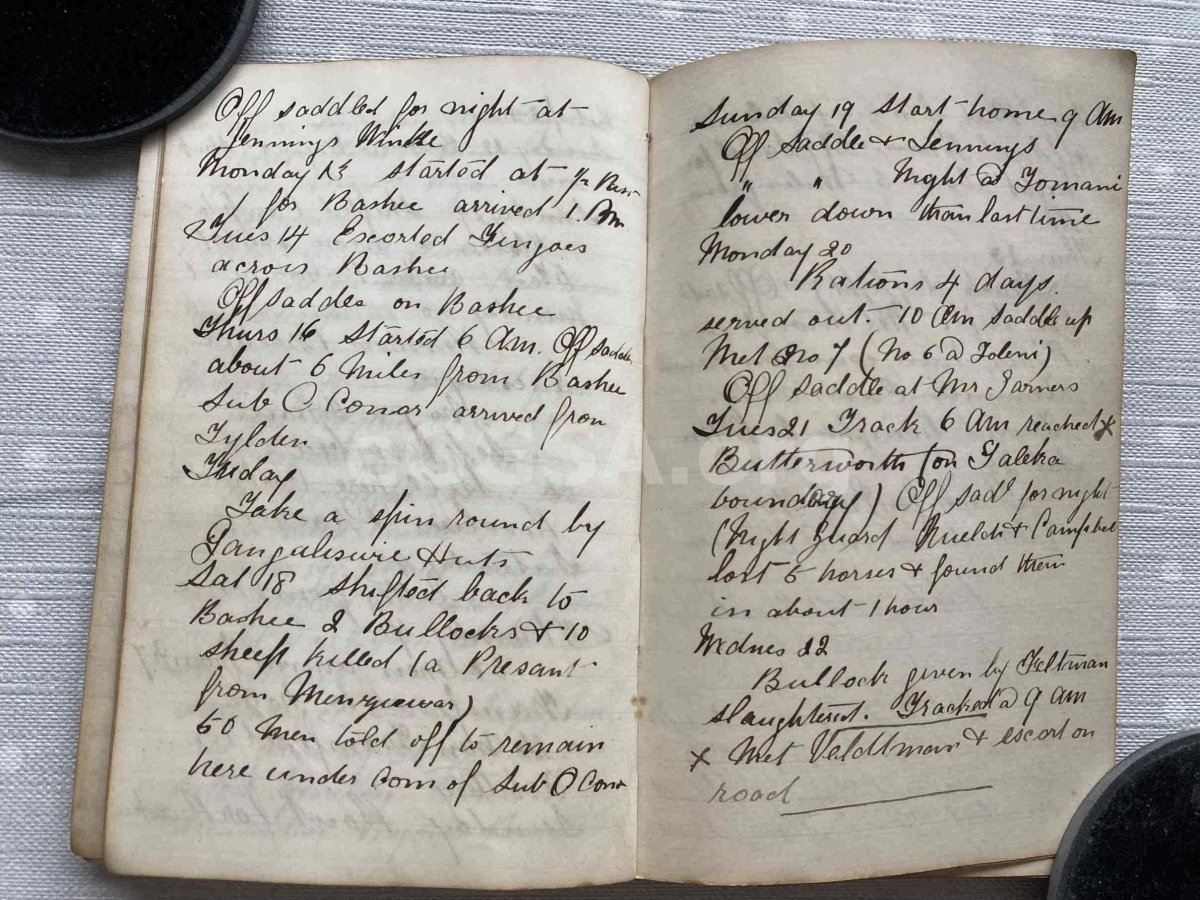 Off saddled for night at
Jennings Winkle
Monday 13 started at ½ past
1 for Bashee arrived 1. Pm
Tues 14 Escorted Fingoes
across Bashee
Off saddle on Bashee
Thurs 16 started 6 Am. Off saddle
about 6 Miles from Bashee
Sub O Conor arrived from
Tylden
Friday
Take a spin round by
Huts
Sat 18 shifted back to
Bashee 2 Bullocks & 10
sheep killed (a Presant
from
50 Men told off to remain
here under com of Sub O Conor
Sunday 19 Start home 9 Am
Off Saddle & Jennings
" " Night @ Tomani
lower down than last time
Monday 20
Rations 4 days.
served out. 10 Am saddle up
Met No 7 (No 6 @ Toleni)
Off Saddle at Mr
Tues 21 Track 6 Am reached x
Butterworth (on Galeka
boundary) Off sadl for night
(Night guard & Campbel
lost 5 horses & found them
in about 1 hour
Wednes 22
Bullock given by Feltman
slaughtered. Tracked @ 9 am
x Met Veldtman & escort on
road